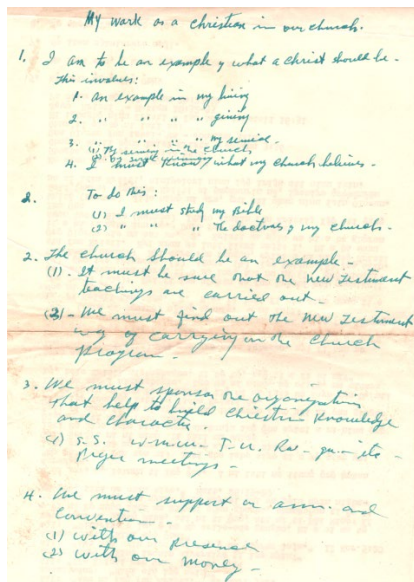 My work as a christian in our church.
1. I am to be an example of what a christ should be -
This involves:
1. An example in my living
2. " " " " giving
3. " " " " my service.
(1) By serving in the church
(2) By soul winning
4. I must know what my church believes -
2. To do this:
(1) I must study my Bible
(2) " " " The doctrines of my church.
2. The church should be an example -
(1) - It must be sure that the new Testament
teachings are carried out -
(2) - We must find out the new Testament
way of carrying on the church
program -
3. We must sponsor the organizations
that help to build christian knowledge
and character.
(1) S.S. W.M.U. - T.U. Ra - ga - etc -
prayer meetings -
4. We must support our assn. and
convention -
(1) with our presence
(2) with our money -